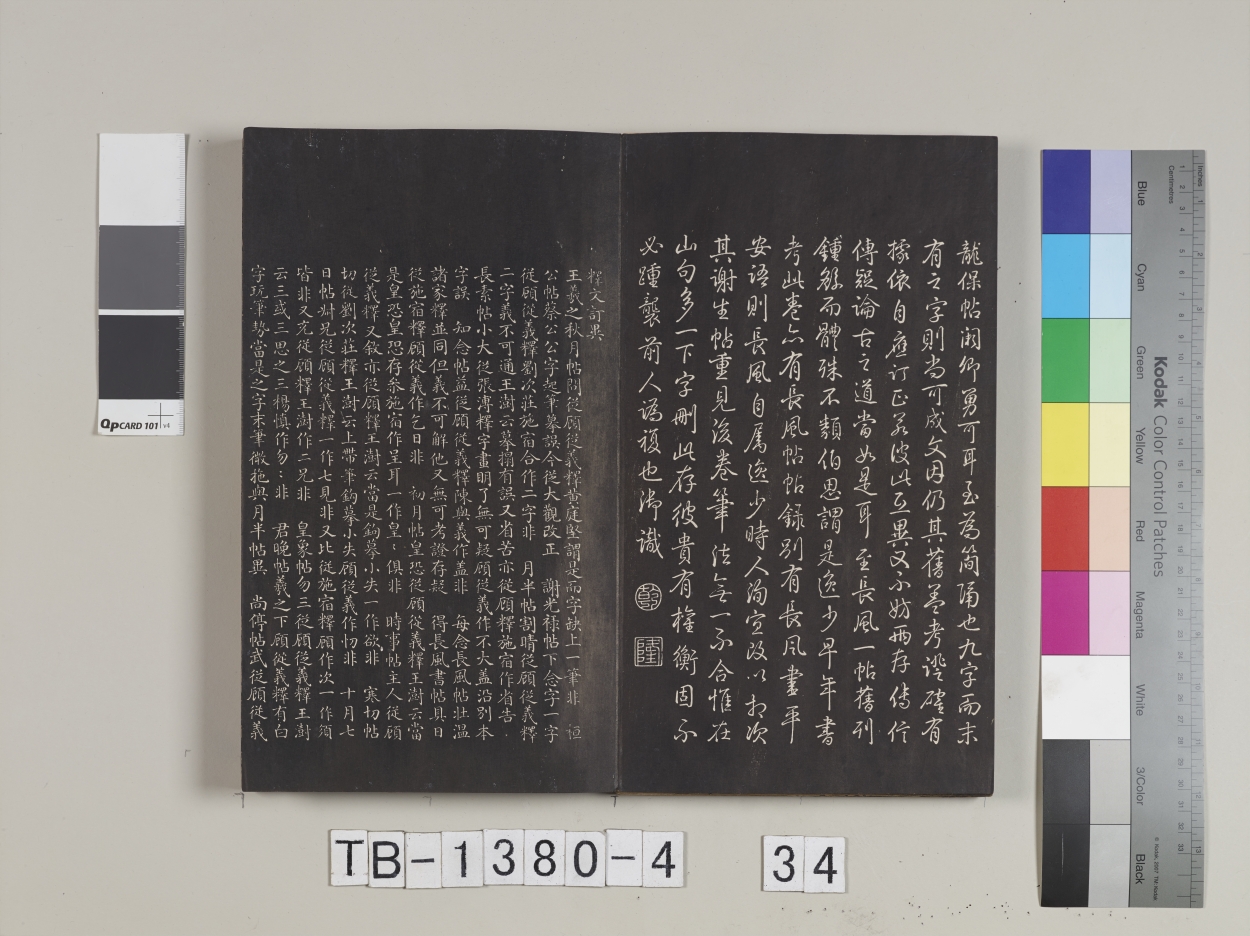 龍保帖閑卿勇可耳至為簡誦也九字而末
有之字則尚可成文因仍其舊益考證確有
據依自應訂正若彼此互異又不妨兩存傳信
傳疑論古之道當如是耳至長風一帖舊刊
鍾繇而體殊不類伯思謂是逸少早年書
考此卷亦有長風帖帖錄別有長風書平
安語則長風自屬逸少時人洵宜改以相次
其謝生帖重見後卷筆法無一不合惟在
山句多一下字刪此存彼貴有權衡固不
必踵襲前人譌複也御識
乾
隆
釋文奇異
王羲之秋月帖問從顧從義釋黃庭堅謂是而字缺上一筆非 恒
公帖蔡公公字起筆摹誤今從大觀改正 謝光祿帖下念字一字
從顧從義釋劉次莊施宿合作二字非 月半帖割晴從顧從義釋
二字義不可通王澍云摹搨有誤又省苦亦從顧釋施宿作省告
長素帖小大從張溥釋字畫明了無可疑顧從義作不大蓋沿別本
字誤 知念帖益從顧從義釋陳與義作蓋非 每念長風帖壯溫
諸家釋並同但義不可解他又無可考證存疑 得長風書帖具日
從施宿釋顧從義作乞日非 初月帖皇恐從顧從義釋王澍云當
是皇恐皇恐存參施宿作呈耳一作皇〻俱非 時事帖主人從顧
從義釋又敘亦從顧釋王澍云當是鉤摹小失一作欲非 寒切帖
切從劉次莊釋王澍云上帶筆鉤摹小失顧從義作忉非 十月七
日帖兄從顧從義釋一作七見非又比從施宿釋顧作次一作須
皆非又光從顧釋王澍作二兄非 皇象帖勿三從顧從義釋王澍
云三或三思之三楊慎作勿〻非 君晚帖羲之下顧從義釋有白
字玩筆勢當是之字末筆微拖與月半帖異 尚停帖武從顧從義
QPCARD 101 v4
TB-1380-4
34
Kodak Color Control Patches
Blue
Cyan
Green
Yellow
Red
Magenta
White
3/Color
Black
Inches
Centimetres
© Kodak, 2007 TM: Kodak